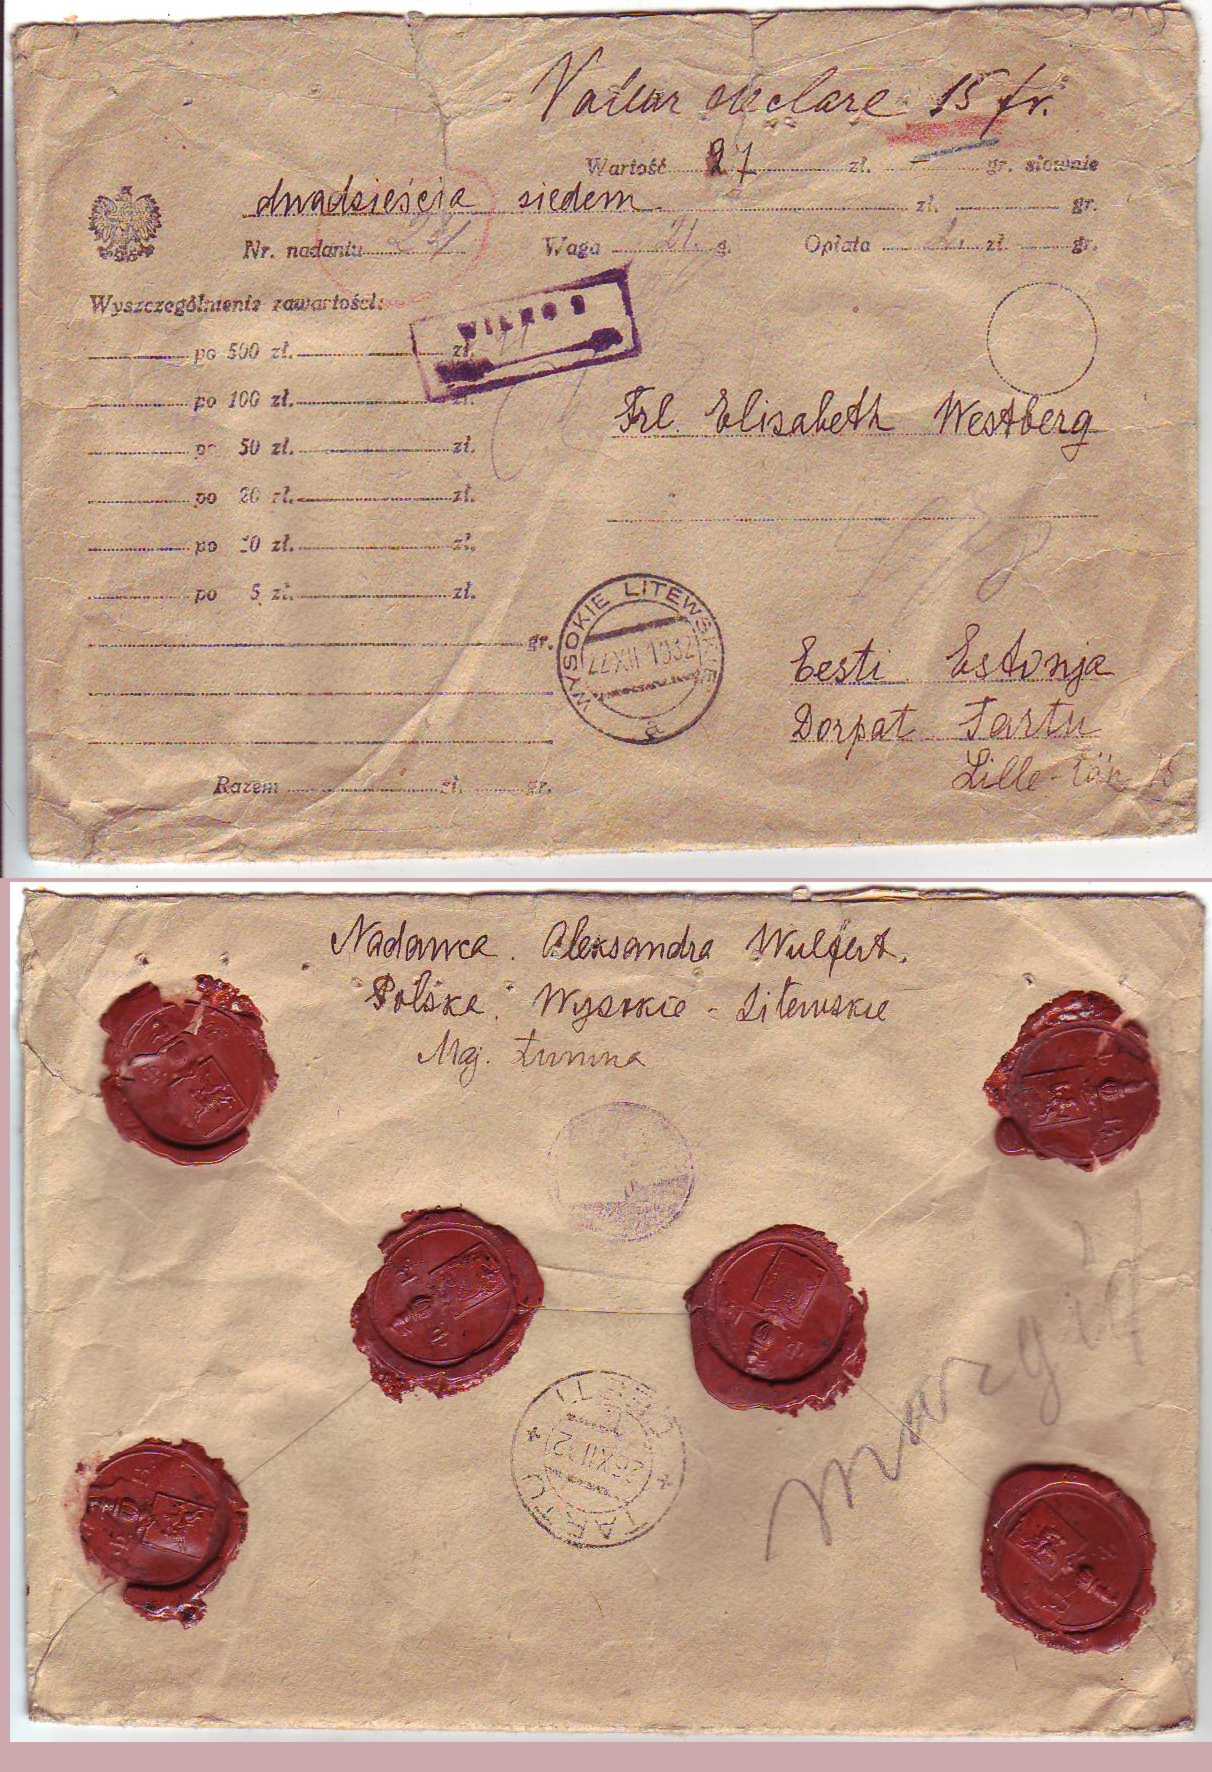 Valeur declare 15 fr.
Wartość 27 zł. — gr. słownie
dwadzieścia siedem zł. gr.
Nr. nadania Waga 21 g. Opłata zł. gr.
Wyszczególnienie zawartości:
WILNO 2
po 500 zł. zł.
po 100 zł. zł.
po 50 zł. zł.
po 20 zł. zł.
po 10 zł. zł.
po 5 zł. zł.
gr.
Frl. Elisabeth Westberg
WYSOKIE LITEWSKIE
22 XII 1932
a
Eesti Estonja
Dorpat Tartu
Lille-tän 18
Razem zł. gr.
Nadawca. Aleksandra Wulfert.
Polska. Wysokie-Litewskie
Maj.
TARTU EESTI
XII 32
Margit